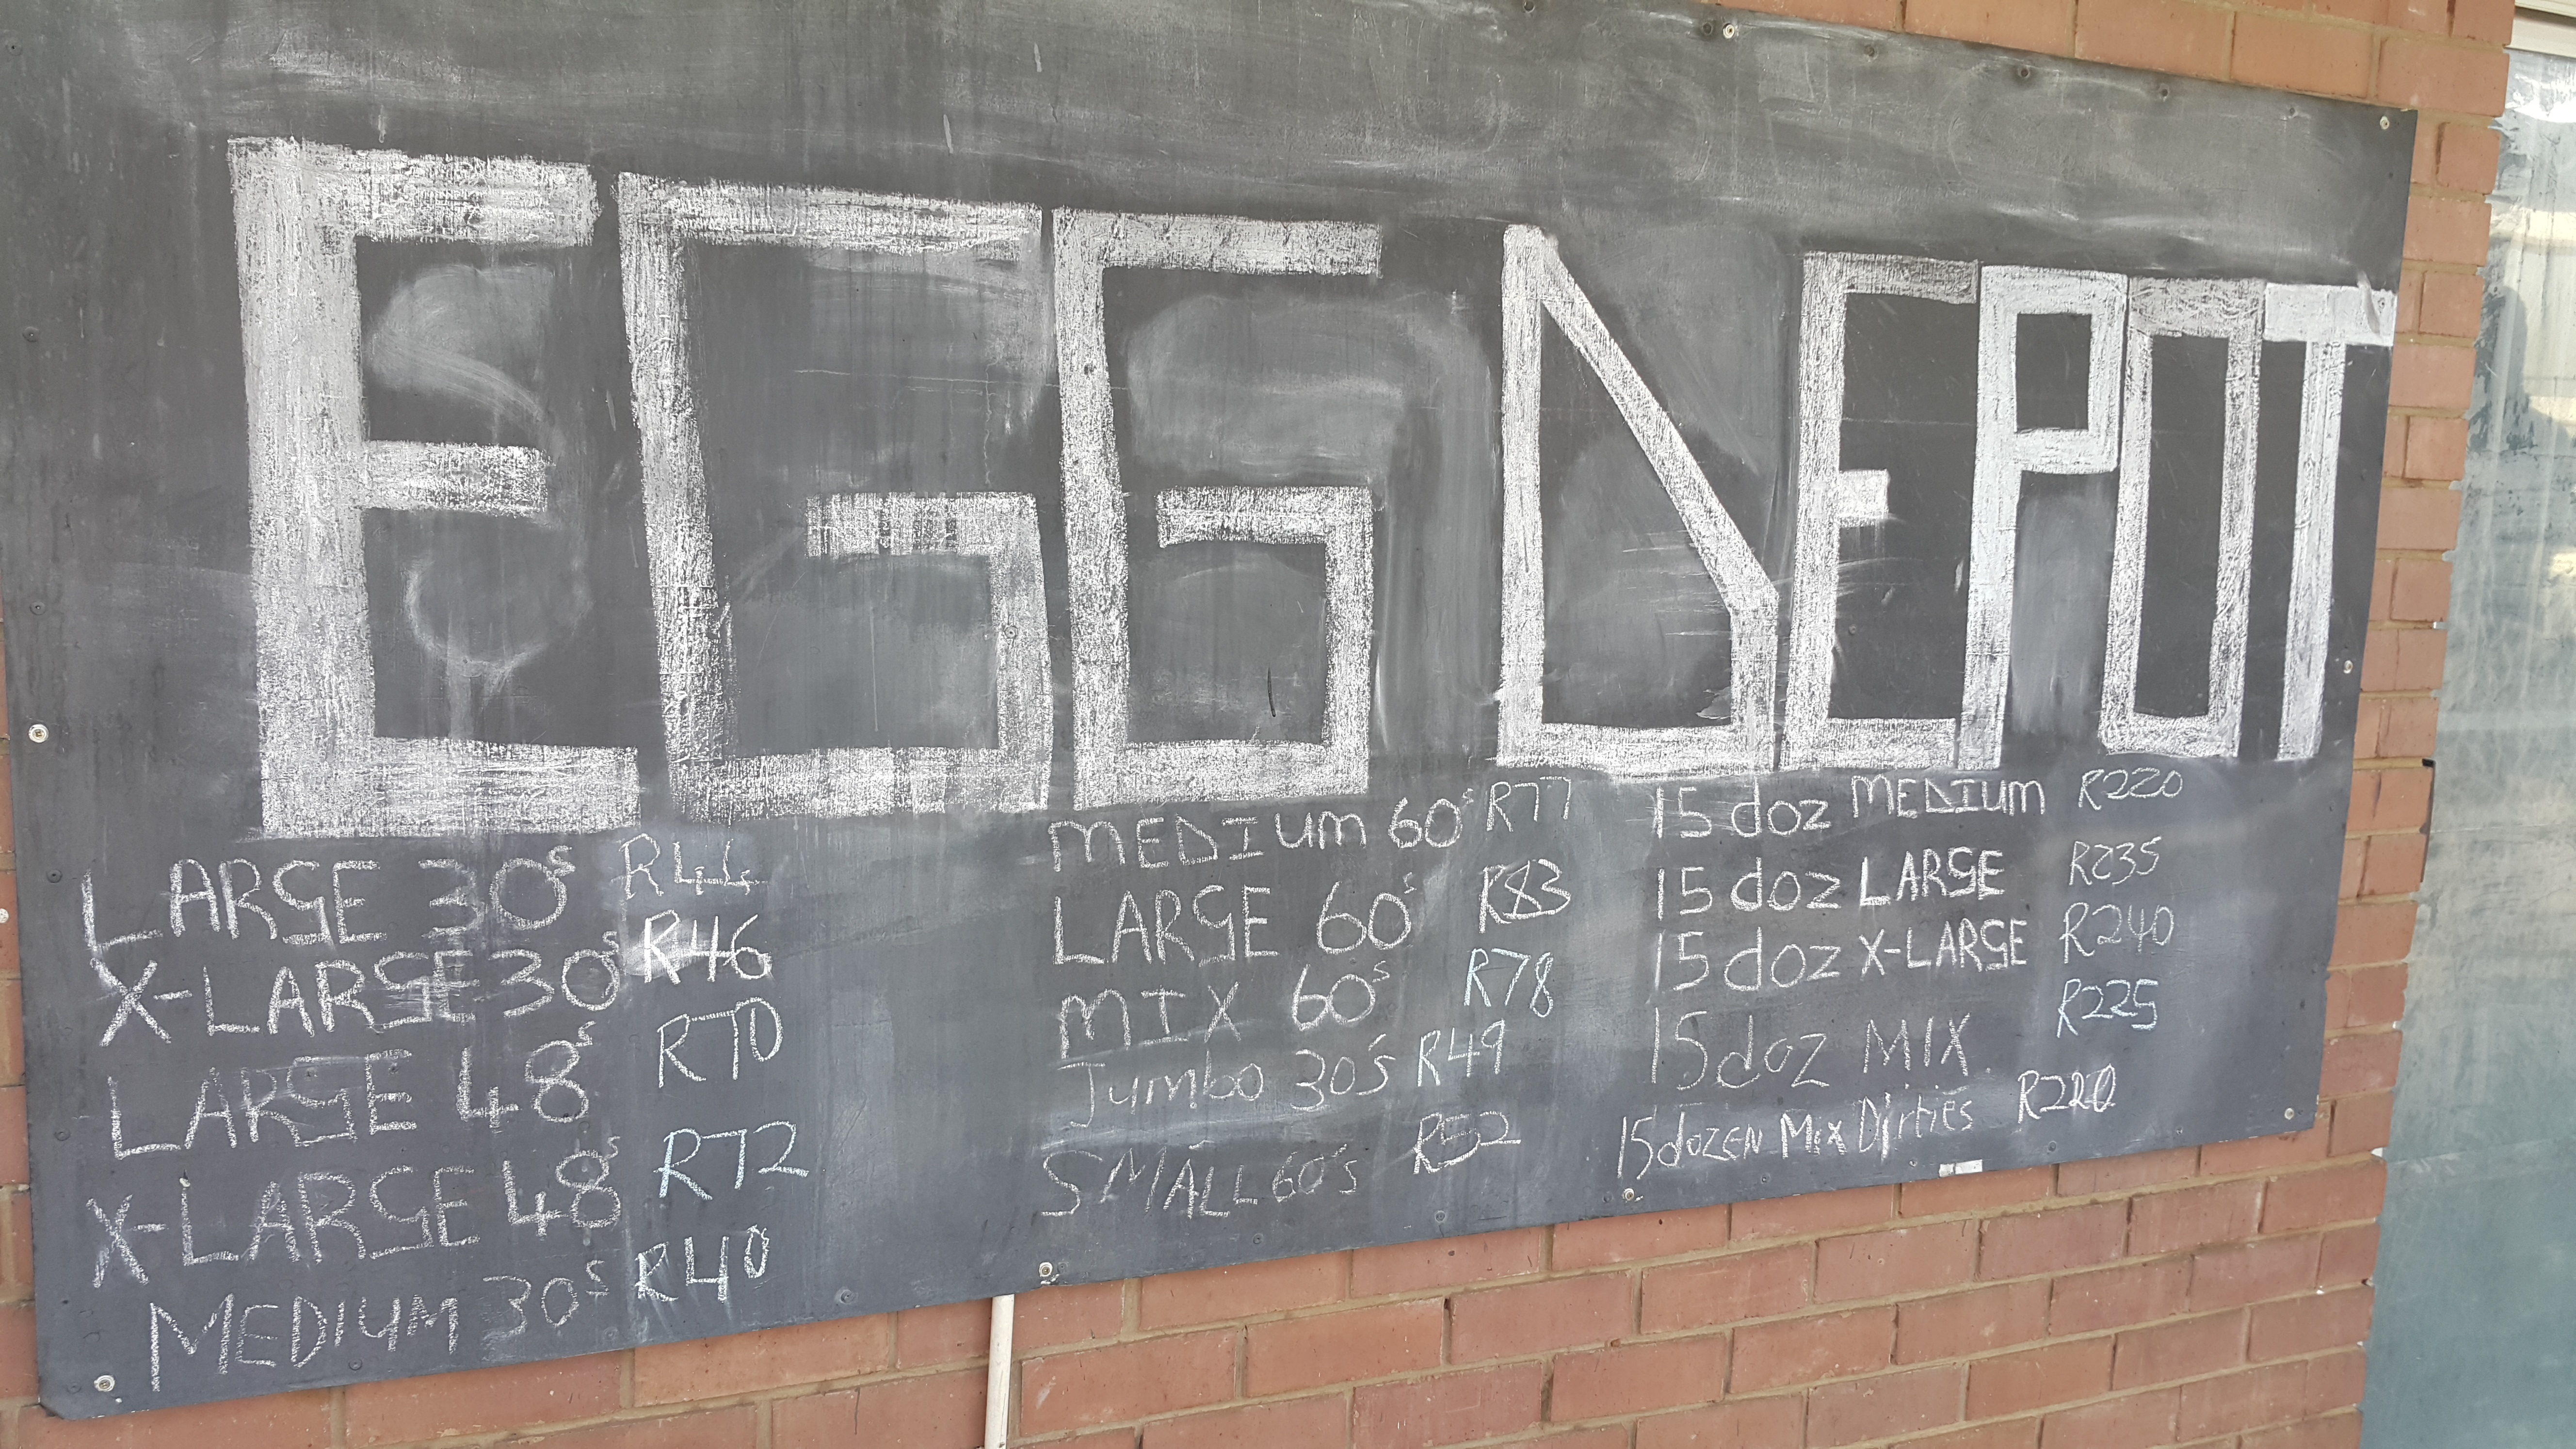 EGG DEPOT
LARGE 30s R44
X-LARGE 30s R46
LARGE 48s R70
X-LARGE 48s R72
MEDIUM 30s R40
MEDIUM 60s R77
LARGE 60s R83
MIX 60s R78
Jumbo 30's R49
SMALL 60's R52
15 doz MEDIUM R220
15 doz LARGE R235
15 doz X-LARGE R240
15 doz MIX R225
15 dozEN Mix Dirties R220